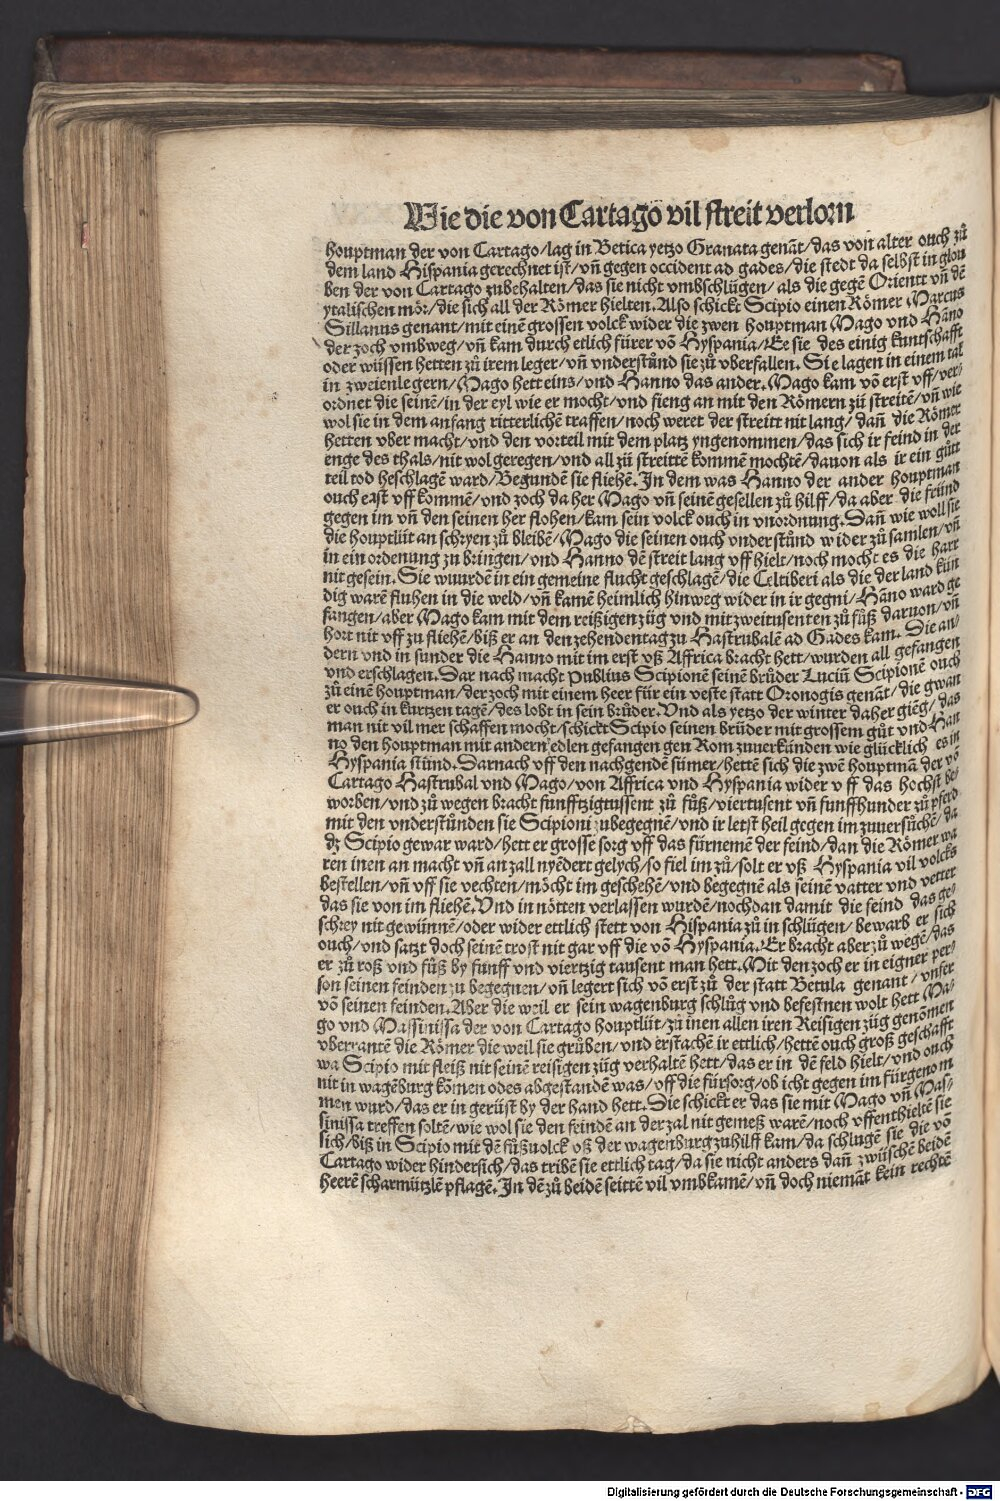 Wie die von Cartago vil streit verlorn
houptman der von Cartago/lag in Betica yetzo Granata genāt/das von alter ouch zů
dem land Hispania gerechnet ist/vñ gegen occident ad gades/die stedt da selbst in glou
ben der von Cartago zubehalten/das sie nicht vmbschlügen/als die gegē Orientt vñ dē
ytalischen mör/die sich all der Römer hielten. Also schickt Scipio einen Römer Marcus
Sillanus genant/mit einē grossen volck wider die zwen houptman Mago vnd Hāno
der zoch vmbweg/vñ kam durch etlich fürer vō Hyspania/Ee sie des einig kuntschafft
oder wüssen hetten zů irem leger/vñ vnderstůnd sie zů vberfallen. Sie lagen in einem tal
in zweien legern/Mago hett eins/vnd Hanno das ander. Mago kam vō erst vff/ver/
ordnet die seinē/in der eyl wie er mocht/vnd fieng an mit den Römern zů streitē/vñ wie
wol sie in dem anfang ritterlichē traffen/noch weret der streitt nit lang/dañ die Römer
hetten vber macht/vnd den vorteil mit dem platz yngenommen/das sich ir feind in der
enge des thals/nit wol geregen/vnd all zů streittē kommē mochtē/dauon als ir ein gůtt
teil tod heschlagē ward/Begundē sie fliehē. In dem was Hanno der ander houptman
ouch erst vff kommē/vnd zoch da her Mago vñ seinē gesellen zů hilff/da aber die fründ
gegen im vñ den seinen her flohen/kam sein volck ouch in vnordnung. Dañ wie woll sie
die houptlüt an schryen zů bleibē/Mago die seinen ouch vnderstůnd wider zů samlen/vñ
in ein ordenung zu bringen/vnd Hanno dē streit lang vff hielt/noch mocht es die harr
nit gesein. Sie wuurdē in ein gemeine flucht geschlagē/die Celtiberi als die der land kün
dig warē fluhen in die weld/vñ kamē heimlich hinweg wider in ir gegni/Hāno ward ge
fangen/aber Mago kam mit dem reißigen züg vnd mit zweitusenten zů fůß daruon/vñ
hort nit vff zu fliehē/biß er an den zehendentag zu Hastrubalē ad Gades kam. Die an/
dern vnd in sunder die Hanno mit im erst vß Affrica bracht hett/wurden all gefangen
vnd erschlagen. Dar nach macht Publius Scipionē seinē brůder Luciū Scipionē ouch
zů einē houptman/der zoch mit einem heer für ein veste statt Oronogis genāt/die gwan
er ouch in kurtzen tagē/des lobt in sein brůder. Vnd als yetzo der winter daher gieg/das
man nit vil mer schaffen mocht/schickt Scipio seinen brüder mit grossem gůt vnd Han
no den houptman mit andern edlen gefangen gen Rom zuuerkünden wie glücklich es in
Hyspania stünd. Darnach vff den nachgendē sümer/hettē sich die zwē houptmā der vō
Cartago Hastrubal vnd Mago/von Affrica vnd Hyspania wider vff das hochst be/
worben/vnd zů wegen bracht funfftzigtussent zů fůß/viertusent vñ funffhunder zů pferd
mit den vnderstůnden sie Scipioni zubegegnē/vnd ir letst heil gegen im zuuersůchē/da
dz Scipio gewar ward/hett er grosse sorg vff das fürnemē der feind/dan die Römer wa
ren inen an macht vñ an zall nyēdert gelych/so fiel im zů/solt er vß Hyspania vil volcks
bestellen/vñ vff sie vechten/möcht im geschehē/vnd begegnē als seinē vatter vnd vetter
das sie von im fliehē. Vnd in nötten verlassen wurdē/nochdan damit die feind das ge/
schrey nit gewünnē/oder wider ettlich stett von Hispania zů in schlügen/bewarb er sich
ouch/vnd satzt doch seinē trost nit gar vff die vō Hyspania. Er bracht aber zů wegē/das
er zů roß vnd fůß by funff vnd viertzig tausent man hett. Mit den zoch er in eigner per/
son seinen feinden zu begegnen/vñ legert sich vō erst zů der statt Betula genant/vnser
vō seinen feinden. Aber die weil er sein wagenburg schlůg vnd befestnen wolt hett Ma/
go vnd Massinissa der von Cartago houptlüt/zů inen allen iren Reisigen züg genomen
vberrantē die Römer die weil sie grůben/vnd erstachē ir ettlich/hettē ouch groß geschafft
wa Scipio mit fleiß nit seinē reisigen züg verhaltē hett/das er in dē feld hielt/vnd ouch
nit in wagēburg kōmen odes abgestandē was/vff die fürsorg/ob icht gegen im fürgenom
men wurd/das er in gerüst by der hand hett. Die schickt er das sie mit Mago vñ Mas/
sinissa treffen soltē/wie wol sie den feindē an der zal nit gemeß warē/noch vffenthieltē sie
sich/biß in Scipio mit dē fůßuolck vß der wagenburg zuhilff kam/da schlugē sie die vō
Cartago wider hindersich/das tribē sie ettlich tag/da sie nicht anders dañ zwüschē beidē
heerē scharmützlē pflagē. In dē zů beidē seittē vil vmbkamē/vñ doch niemāt kein rechtē
Digitalisierung gefördert durch die Deutsche Forschungsgemeinschaft - DFG